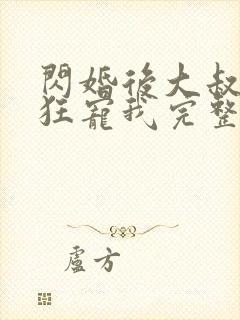 閃婚後大叔
狂寵我完整
盧方